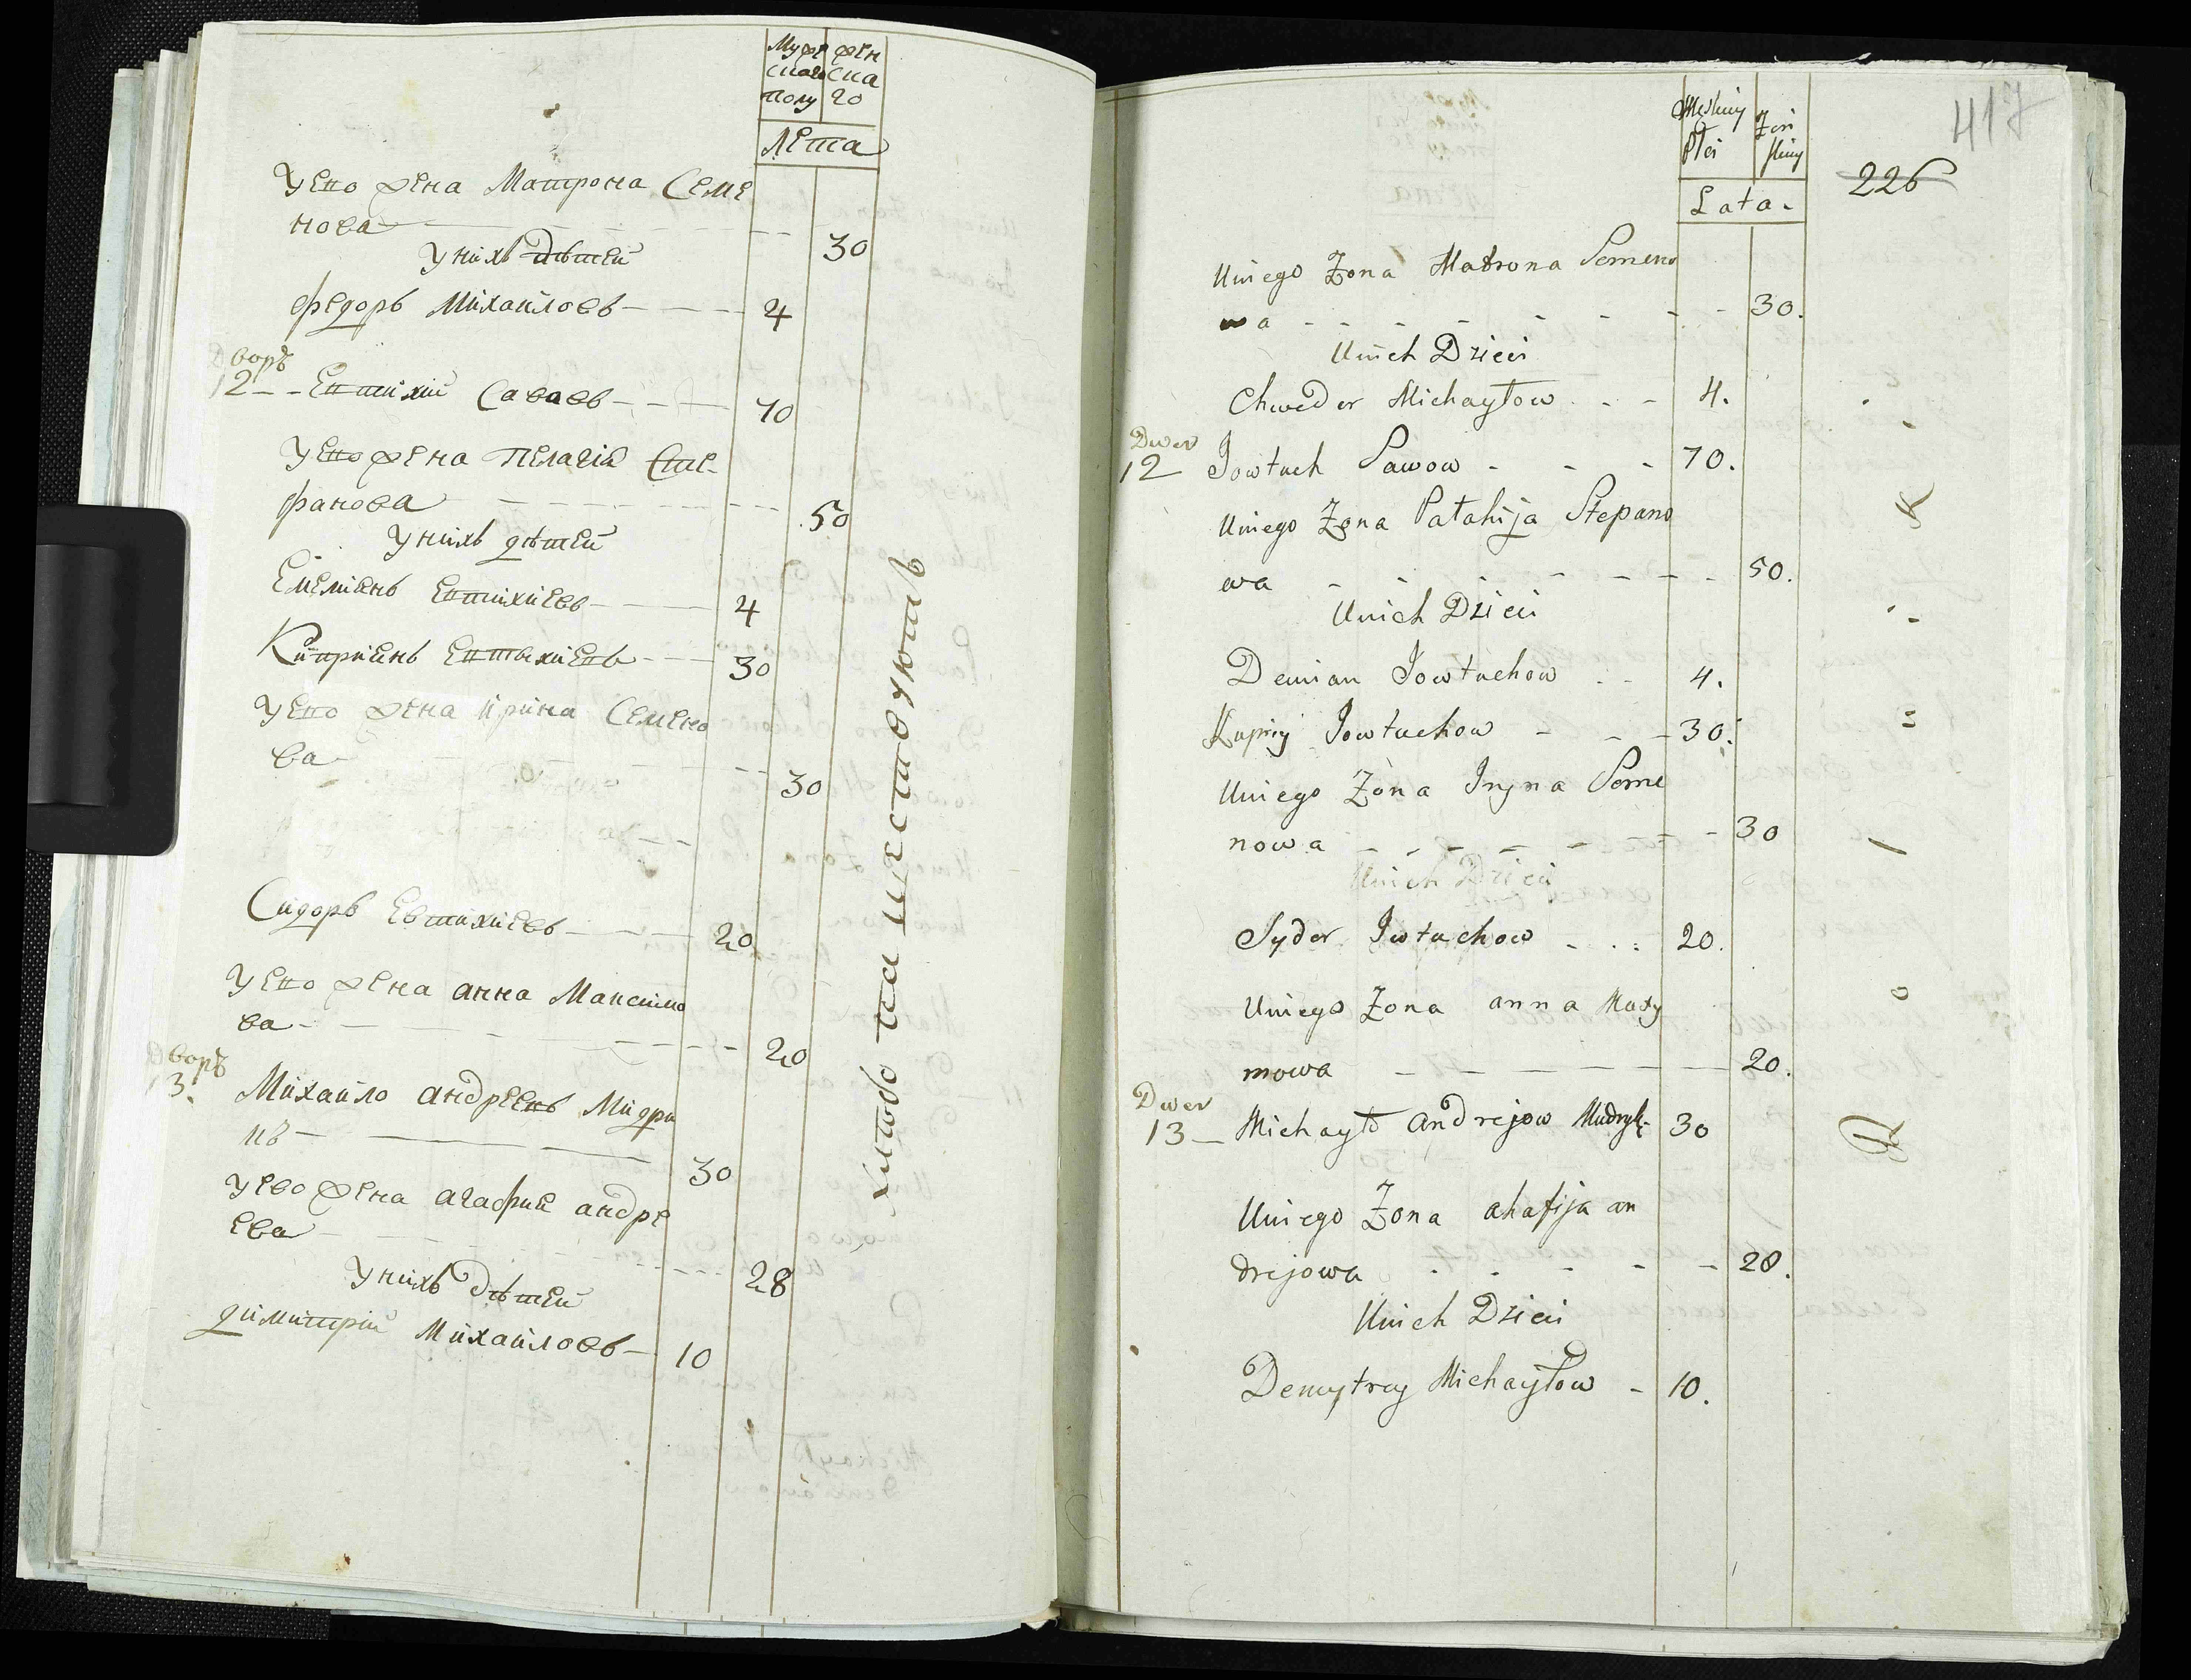 Муже жен
скаго ска
полу го
лета
у ево жена Матрона Семе
нова 30
у нихъ дѣтей
федоръ Михайловъ 4
Дворъ
12 Евтихий Саваовъ 70
у ево жена Пелагия Сте-
фанова 50
у нихъ дѣтей
Емелиянъ Евтихиевъ 4
Киприянъ Евтыхиевъ 30
у ево жена ирина Семено
ва 30
Сидоръ Евтихиевъ 20
у ево жена анна Максимо
ва 20
Дворъ
13. Михайло андреевъ Мидри
къ 30
у ево жена агафия андре
ева 28
у нихъ дѣтей
димитрий Михайловъ 10
417
226
Męskiey Żen
Płci skiey
Lata.
Uniego Żona Matrona Semeno
wa 30.
Unich Dzieci
Chweder Michayłow 4.
Dwor
12 Jowtuch Sawow 70.
Uniego Żona Pałahija Stepano
wa 50.
Unich Dzieci
Demian Jowtuchow 4.
Kupriy Jowtuchow 30.
Uniego Żona Iryna Seme
nowa 30
Unich Dzieci
Syder Jwtuchow 20.
Uniego Żona anna Maxy
mowa 20.
Dwor
13 Michayło andrejow Mudryk 30
Uniego Żona ahafija an
drejowa 28.
Unich Dzieci
Demytrey Michayłow 10.